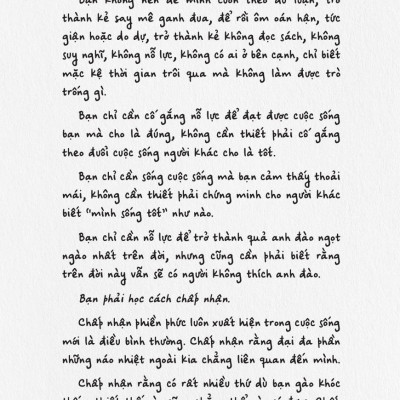 thành kẻ say mê ganh đua, để rồi ôm oán hận, tức
giận hoặc do dự, trở thành kẻ không đọc sách, không
suy nghĩ, không nỗ lực, không có ai ở bên cạnh, chỉ biết
mặc kệ thời gian trôi qua mà không làm được trò
trống gì.
Bạn chỉ cần cố gắng nỗ lực để đạt được cuộc sống
bạn mà cho là đúng, không cần thiết phải cố gắng
theo đuổi cuộc sống người khác cho là tốt.
Bạn chỉ cần sống cuộc sống mà bạn cảm thấy thoải
mái, không cần thiết phải chứng minh cho người khác
biết "mình sống tốt" như nào.
Bạn chỉ cần nỗ lực để trở thành quả anh đào ngọt
ngào nhất trên đời, nhưng cũng cần phải biết rằng
trên đời này vẫn sẽ có người không thích anh đào.
Bạn phải học cách chấp nhận.
Chấp nhận phiền phức luôn xuất hiện trong cuộc sống
mới là điều bình thường. Chấp nhận rằng đại đa phần
những náo nhiệt ngoài kia chẳng liên quan đến mình.
Chấp nhận rằng có rất nhiều thứ dù bạn gào khóc